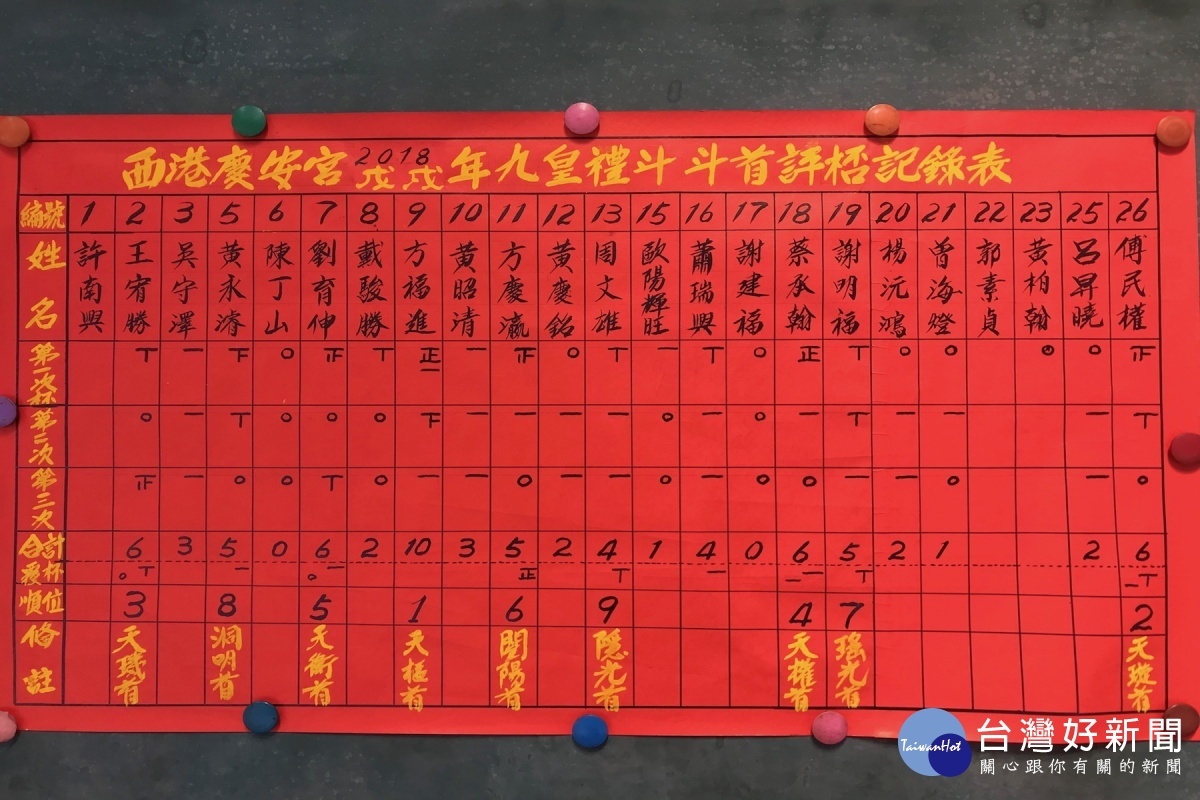 西港慶安宮2018戊戌年九皇禮斗斗首評桮記錄表
編號 1 2 3 5 6 7 8 9 10 11 12 13 15 16 17 18 19 20 21 22 23 25 26
姓名 許南興 王宥勝 吳守澤 黃永濬 陳丁山 劉育伸 戴駿勝 方福進 黃昭清 方慶瀛 黃慶銘 周文雄 歐陽輝旺 蕭瑞興 謝建福 蔡承翰 謝明福 楊沅鴻 曾海燈 郭素貞 黃柏翰 呂昇曉 傅民權
第一次杯 丅 一 下 0 正 丅 正二 一 正 0 丅 一 丅 0 正 丅 0 0 0 0 正
第二次 0 一 丅 0 0 0 下 一 一 一 一 0 一 0 一 丅 一 一 一 丅
第三次 正 一 0 0 丅 0 一 一 0 一 一 0 一 0 0 一 一 0 一 0
合計 6 3 5 0 6 2 10 3 5 2 4 1 4 0 6 5 2 1 2 6
憂杯 0丅 一 0一 正 丅 一 一一 丅 一丅
順位 3 8 5 1 6 9 4 7 2
備註 天璣首 洞明首 天衡首 天樞首 開陽首 隱光首 天權首 瑤光首 天璇首
TaiwanHot 台灣好新聞
關心跟你有關的新聞